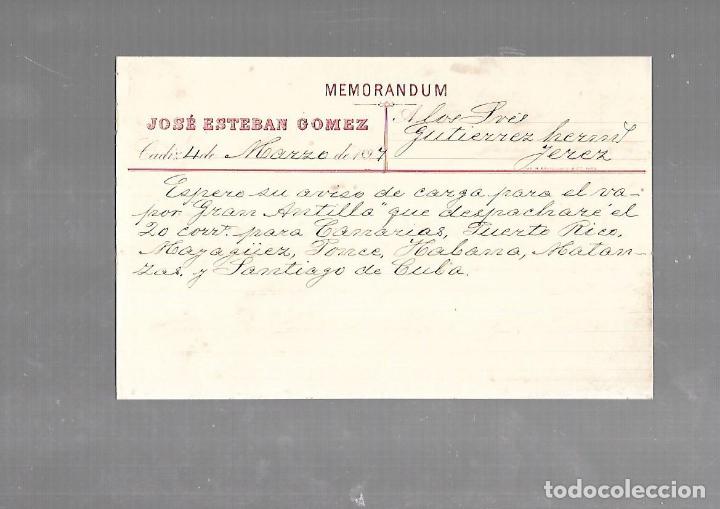 MEMORANDUM
JOSÉ ESTEBAN GOMEZ
A los Sres
Gutierrez herms
Cadiz 4 de Marzo de 1897
Jerez
Espero su aviso de carga para el va-
por "Gran Antilla" que despacharé el
20 corrte. para Canarias, Puerto Rico,
Mayagüez, Ponce, Habana, Matan-
zas y Santiago de Cuba.
todocoleccion.net